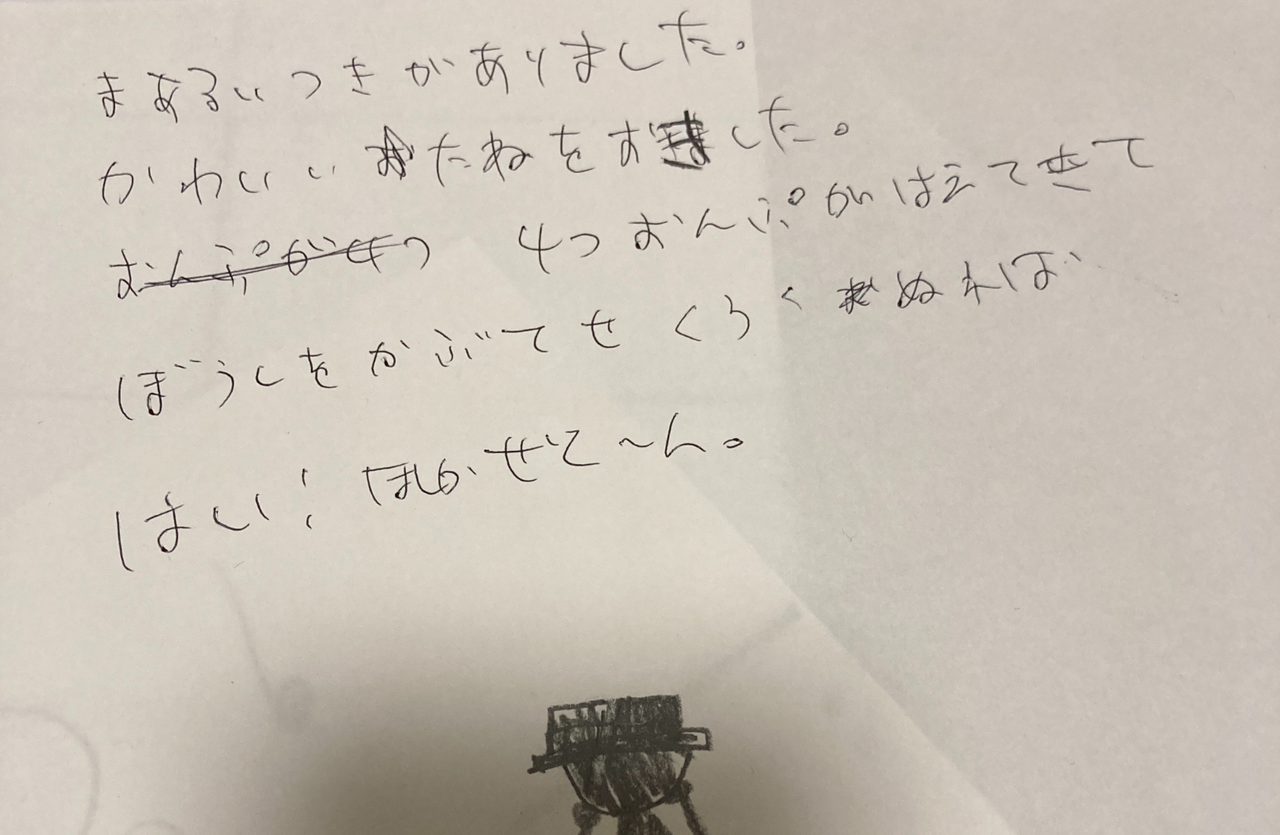 まあるいつきがありました。
かわいいたねをおました。
おんぷが4つ 4つおんぷがはえてきて
ぼうしをかぶてせくろくぬれば
はい！ほかぜて〜ん。